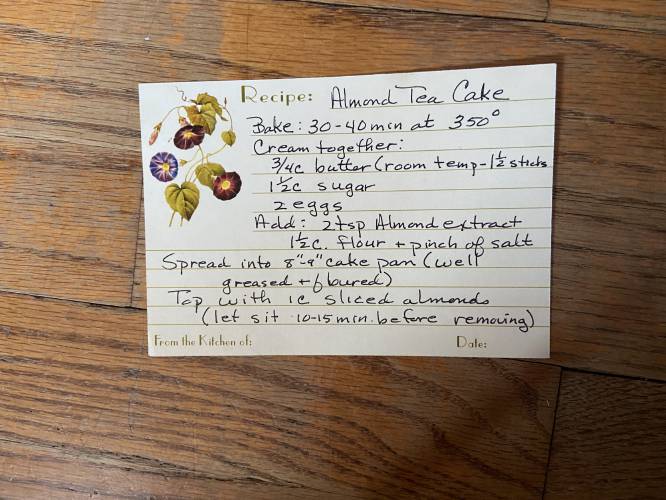 Recipe: Almond Tea Cake
Bake: 30-40 min at 350°
Cream together:
3/4c butter (room temp - 1 1/2 sticks
1 1/2c sugar
2 eggs
Add: 2tsp Almond extract
1 1/2c. flour + pinch of salt
Spread into 8"-9" cake pan (well
greased + floured)
Top with 1c sliced almonds
(let sit 10-15 min. before removing)
From the Kitchen of: Date: